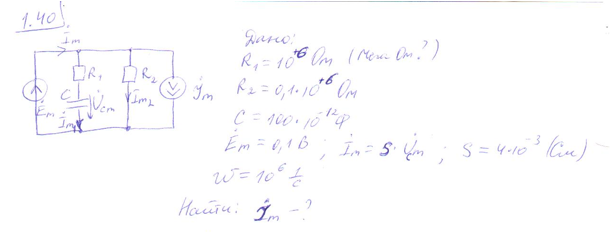 1.40
İm
R1 R2 İm2 Jm
Ėm C U̇cm İm1
Дано:
R1 = 10^+6 Ом (Мега Ом?)
R2 = 0,1·10^+6 Ом
C = 100·10^-12 Ф
Ėm = 0,1 В ; İm = S· U̇m ; S = 4·10^-3 (См)
W = 10^6 1/c
Найти: J̇m - ?